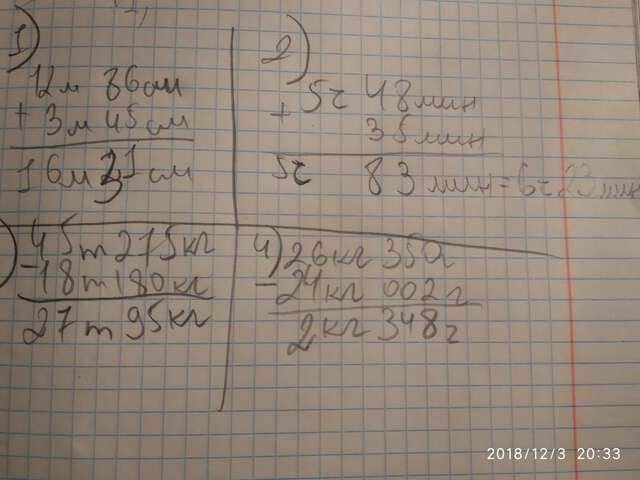 1)
12м 86см
+ 3м 45см
16м 31см
2)
5ч 48мин
+ 35мин
5ч 83мин = 6ч 23мин
)
45т 275кг
- 18т 180кг
27т 95кг
4) 26кг 350г
- 24кг 002г
2кг 348г
2018/12/3 20:33